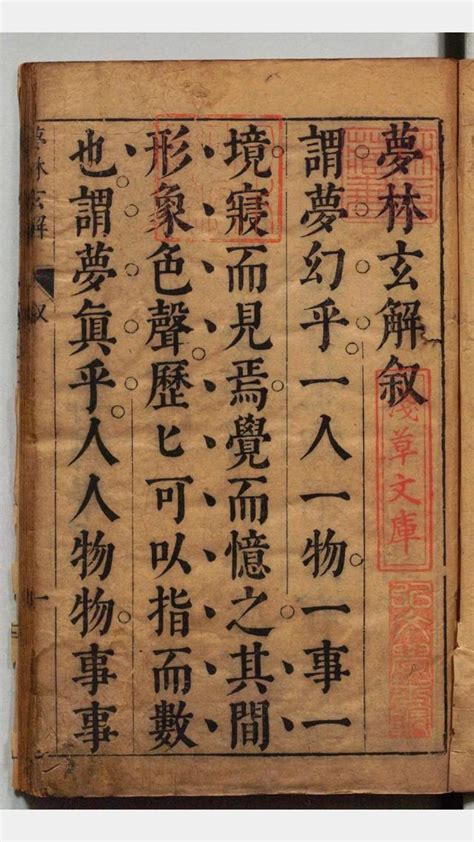 夢林玄解叙
謂夢幻乎一人一物一事一
境寢而見焉覺而憶之其間
形象色聲歷匕可以指而數
也謂夢眞乎人人物物事事
夢林玄解 叙 一
淺草文庫